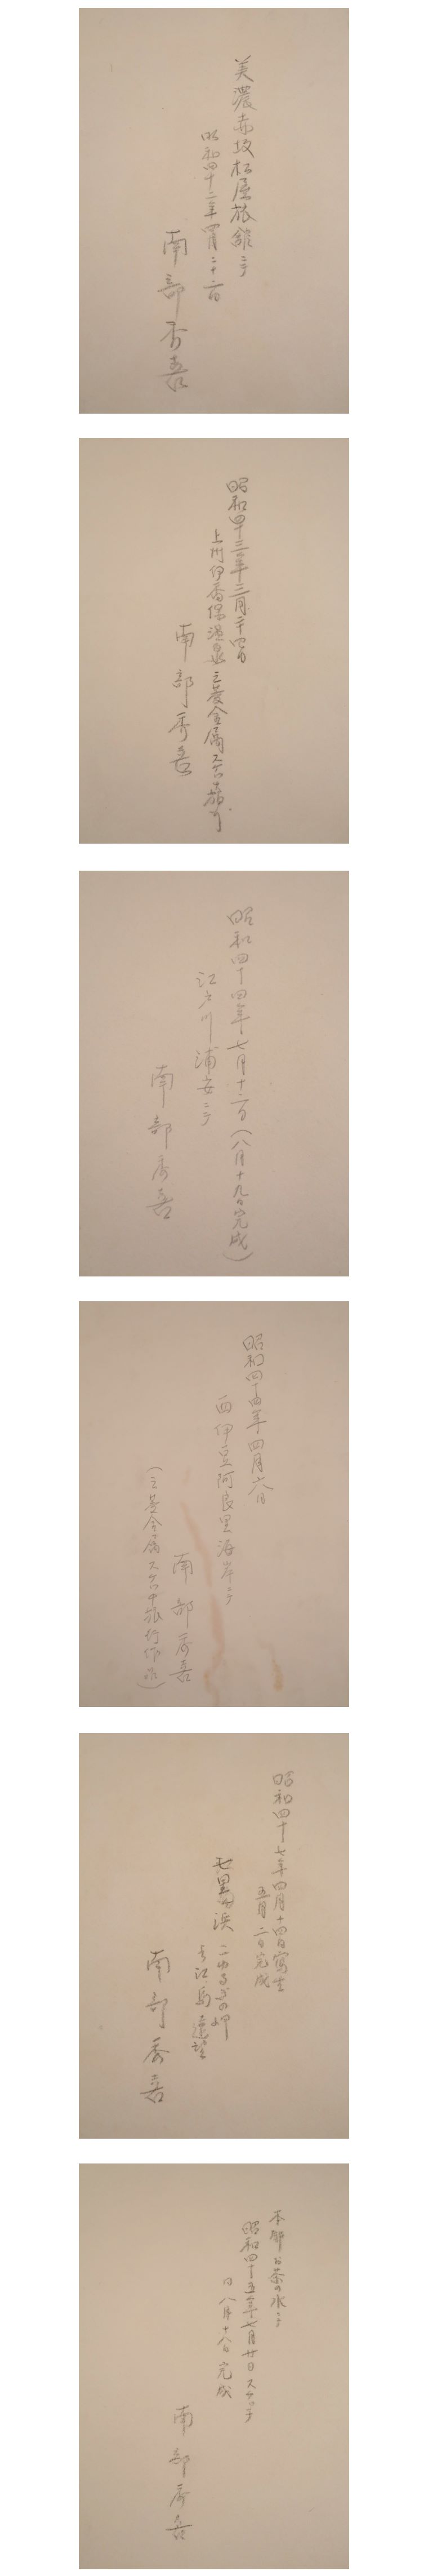 美濃赤坂松屋旅館ニテ
昭和四十二年四月二十六日
南部秀喜
昭和四十三年三月二十四日
上州伊香保温泉 三菱金属スケッチ旅行
南部秀喜
昭和四十四年七月十二日(八月十九日完成)
江戸川浦安ニテ
南部秀喜
昭和四十四年四月六日
西伊豆阿良里海岸ニテ
南部秀喜
(三菱金属スケッチ旅行作品)
昭和四十七年四月十四日寫生
五月二日完成
七里ヶ浜 こゆるぎの岬
江の島遠望
南部秀喜
本郷お茶の水ニテ
昭和四十五年七月廿日スケッチ
八月十八日完成
南部秀喜